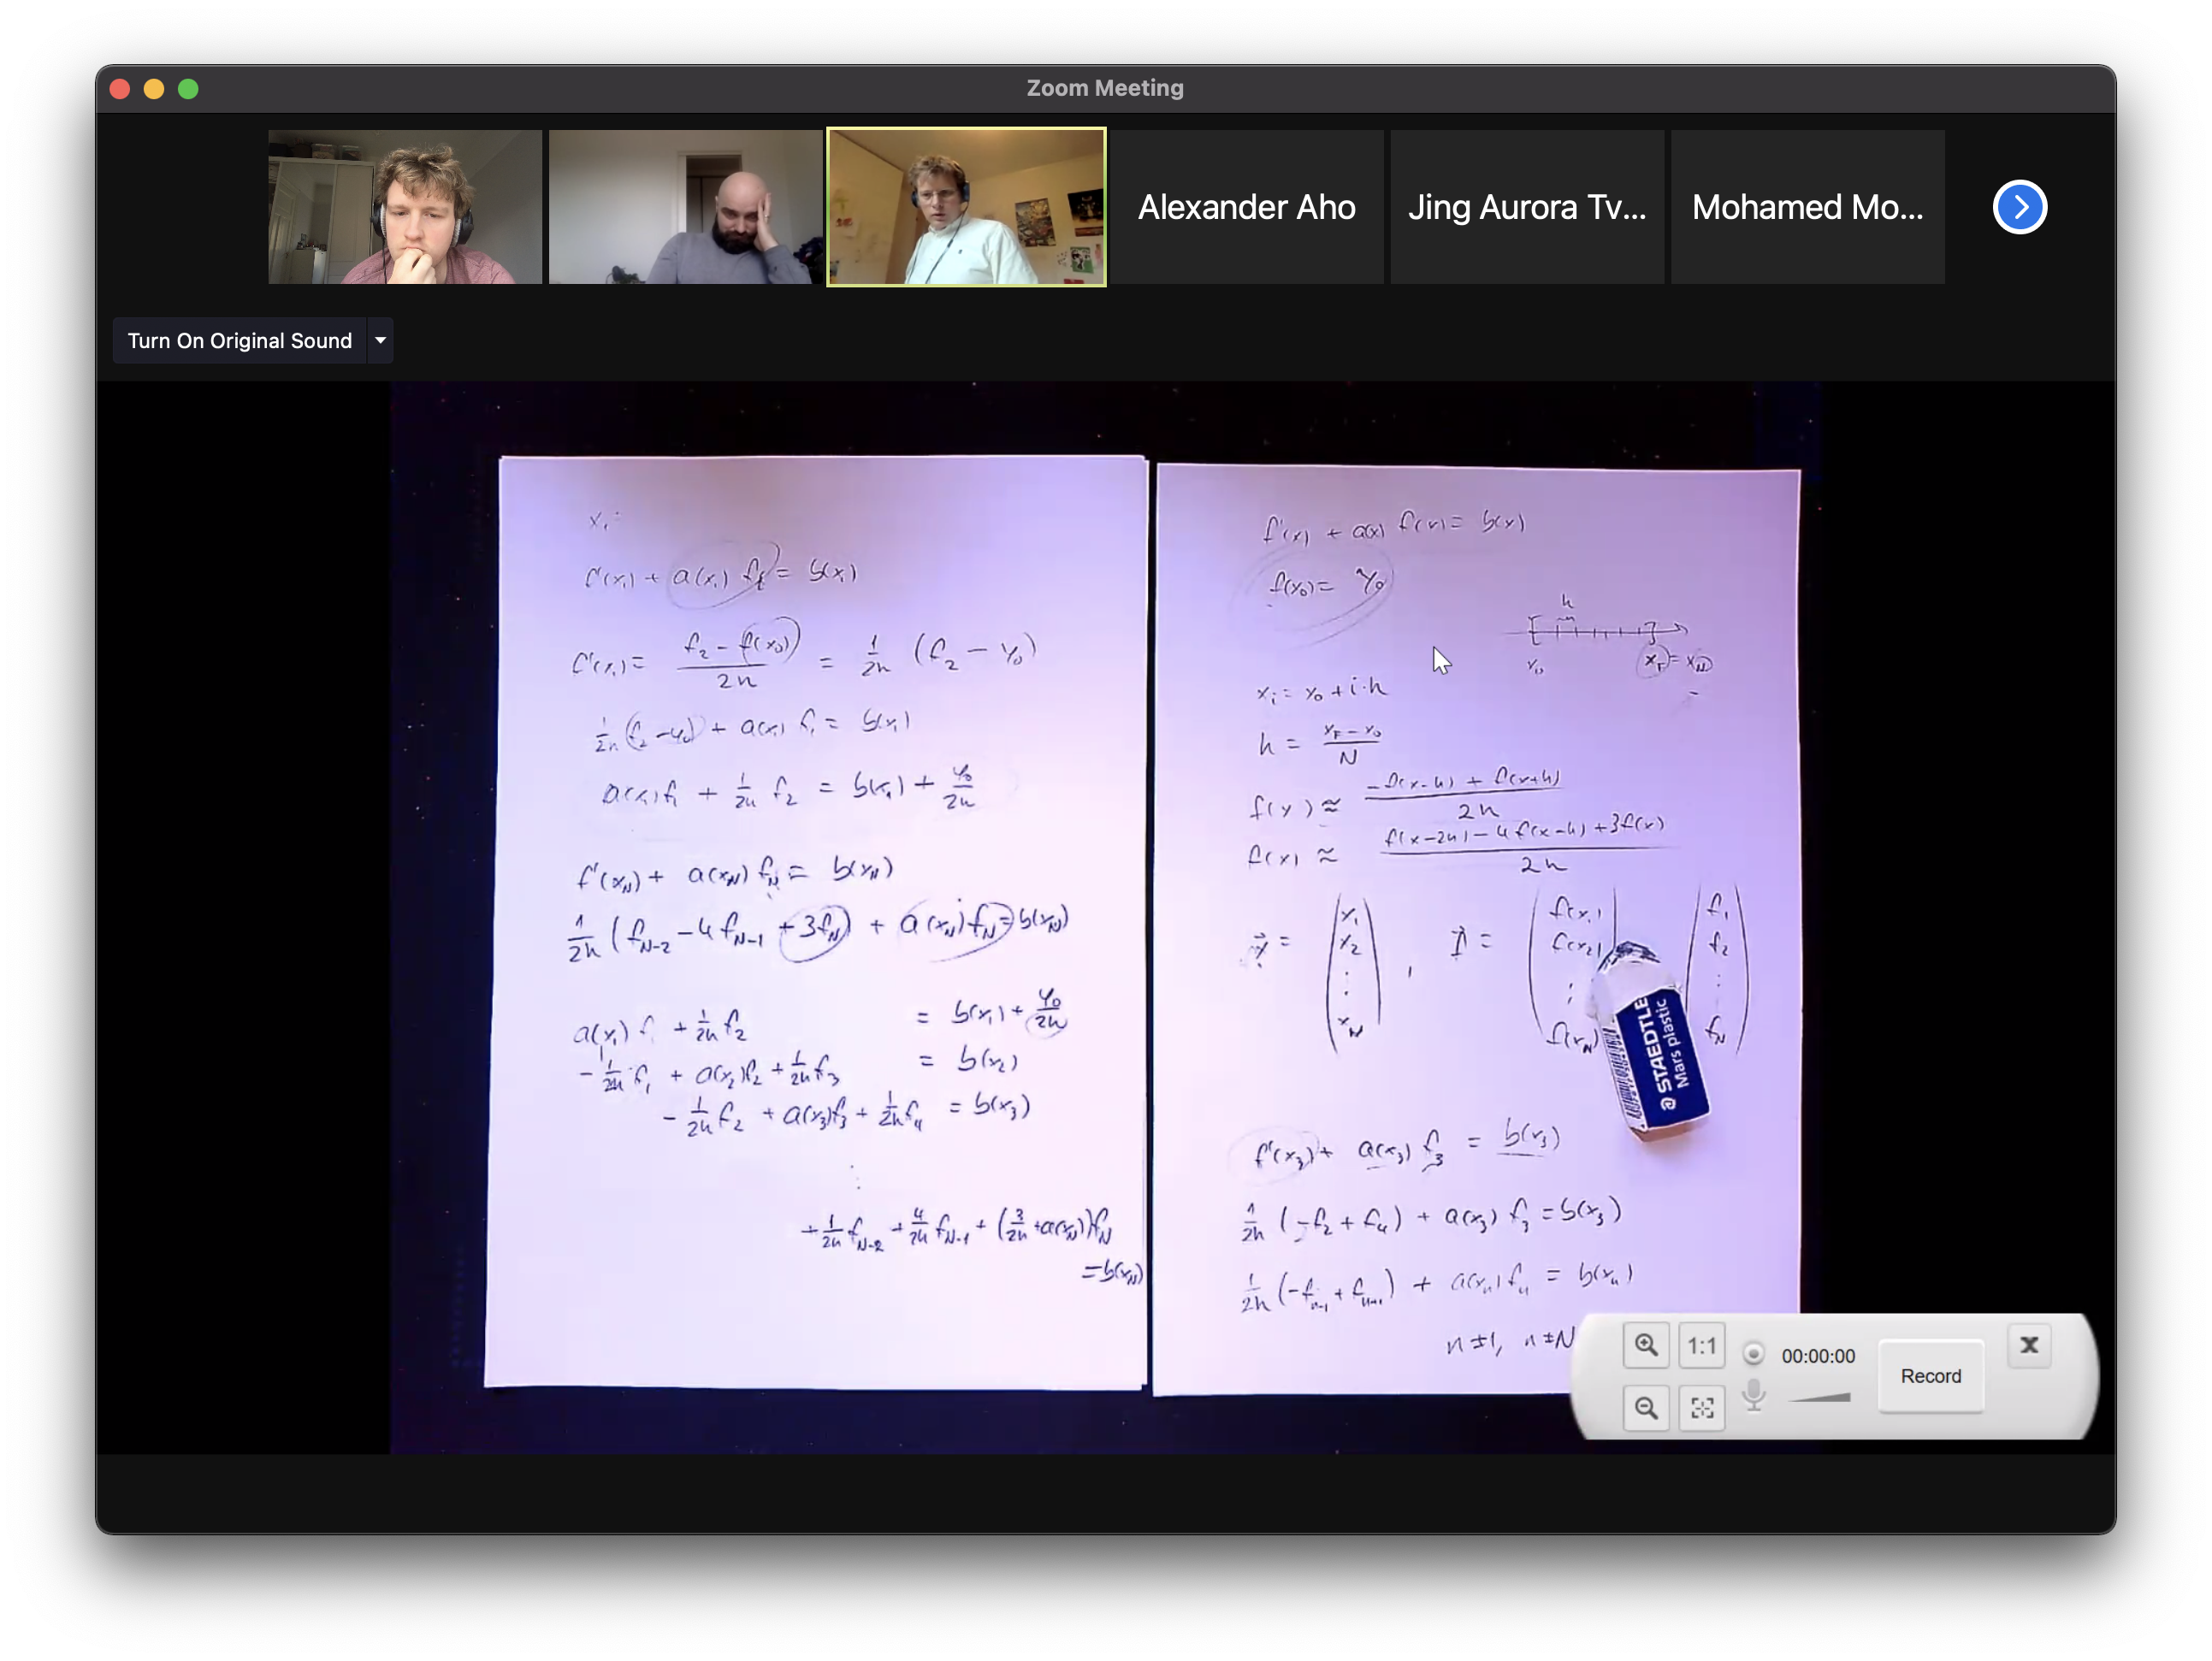 Zoom Meeting
Alexander Aho
Jing Aurora Tv...
Mohamed Mo...
Turn On Original Sound
x₁:
f'(x₁) + a(x₁) f₁ = b(x₁)
f'(x₁) = (f₂ - f(x₀))/2h = 1/2h (f₂ - y₀)
1/2h (f₂ - y₀) + a(x₁) f₁ = b(x₁)
a(x₁) f₁ + 1/2h f₂ = b(x₁) + y₀/2h
f'(x_N) + a(x_N) f_N = b(x_N)
1/2h (f_N-2 - 4 f_N-1 + 3f_N) + a(x_N) f_N = b(x_N)
a(x₁) f₁ + 1/2h f₂ = b(x₁) + y₀/2h
- 1/2h f₁ + a(x₂) f₂ + 1/2h f₃ = b(x₂)
- 1/2h f₂ + a(x₃) f₃ + 1/2h f₄ = b(x₃)
⋮
+ 1/2h f_N-2 + 4/2h f_N-1 + (3/2h + a(x_N)) f_N
= b(x_N)
f'(x) + a(x) f(x) = b(x)
f(x₀) = y₀
h
x₀ x_F = x_N
x_i = x₀ + i·h
h = (x_F - x₀)/N
f(x) ≈ (-f(x-h) + f(x+h))/2h
f(x) ≈ (f(x-2h) - 4f(x-h) + 3f(x))/2h
x⃗ = (x₁ x₂ ⋮ x_N), f⃗ = (f(x₁) f(x₂) ⋮ f(x_N)) (f₁ f₂ ⋮ f_N)
STAEDTLER
Mars plastic
f'(x₃) + a(x₃) f₃ = b(x₃)
1/2h (-f₂ + f₄) + a(x₃) f₃ = b(x₃)
1/2h (-f_n-1 + f_n+1) + a(x_n) f_n = b(x_n)
n ≠ 1, n ≠ N
1:1
00:00:00
Record
X